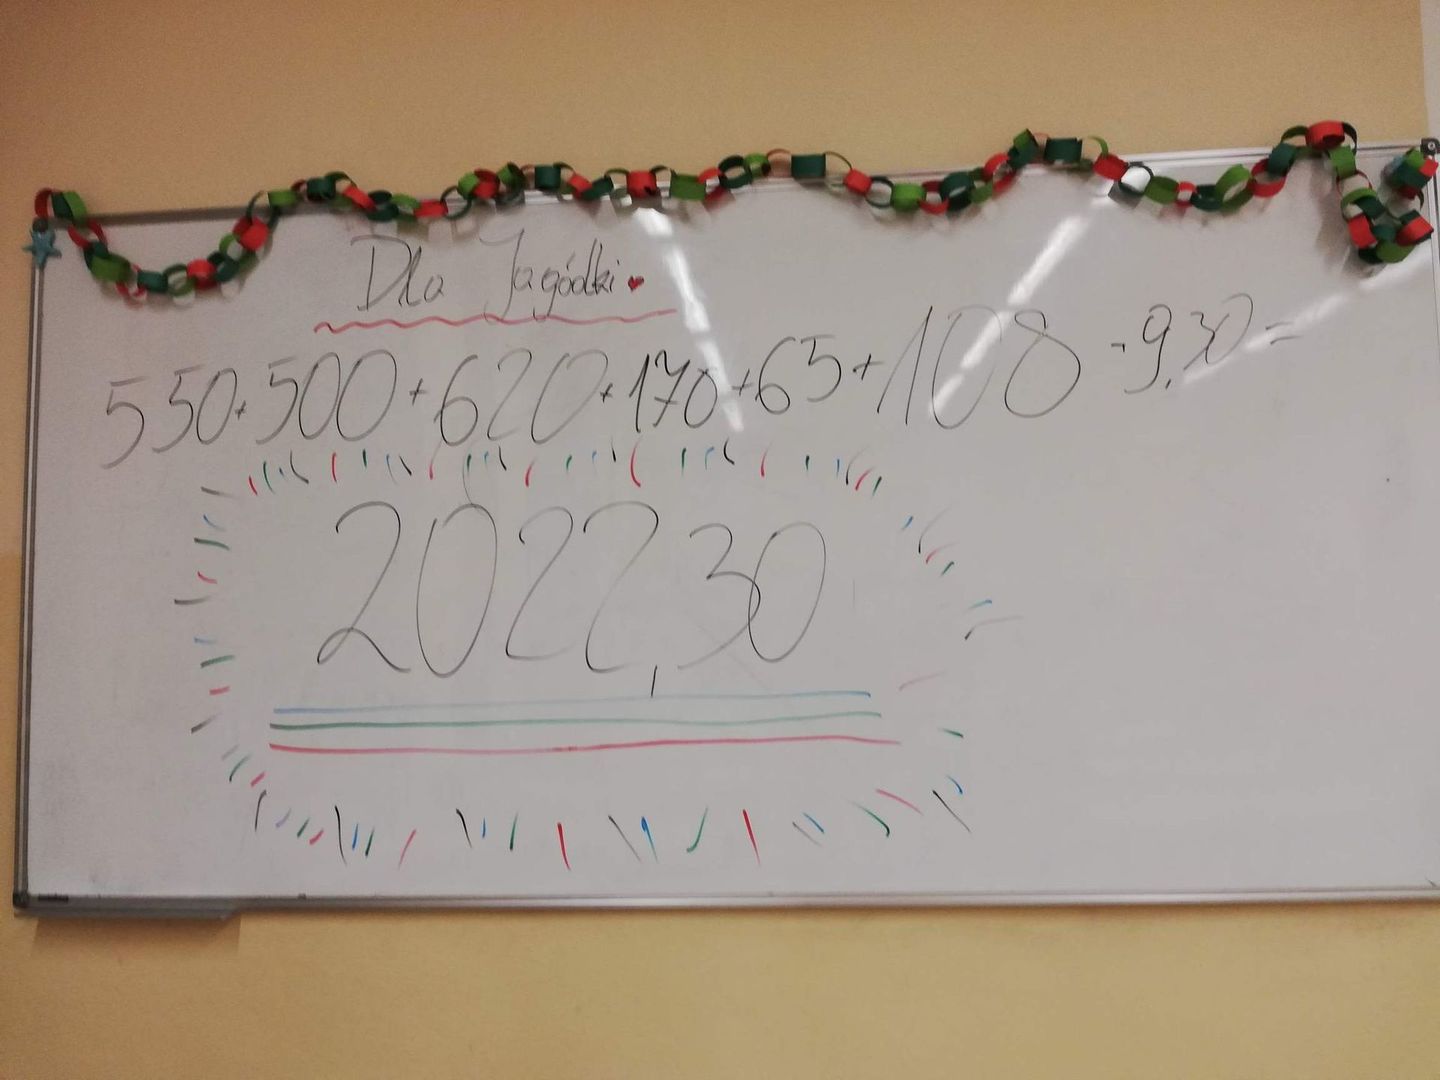 Dla Jagódki
550+500+620+170+65+108+9,30=
2022,30